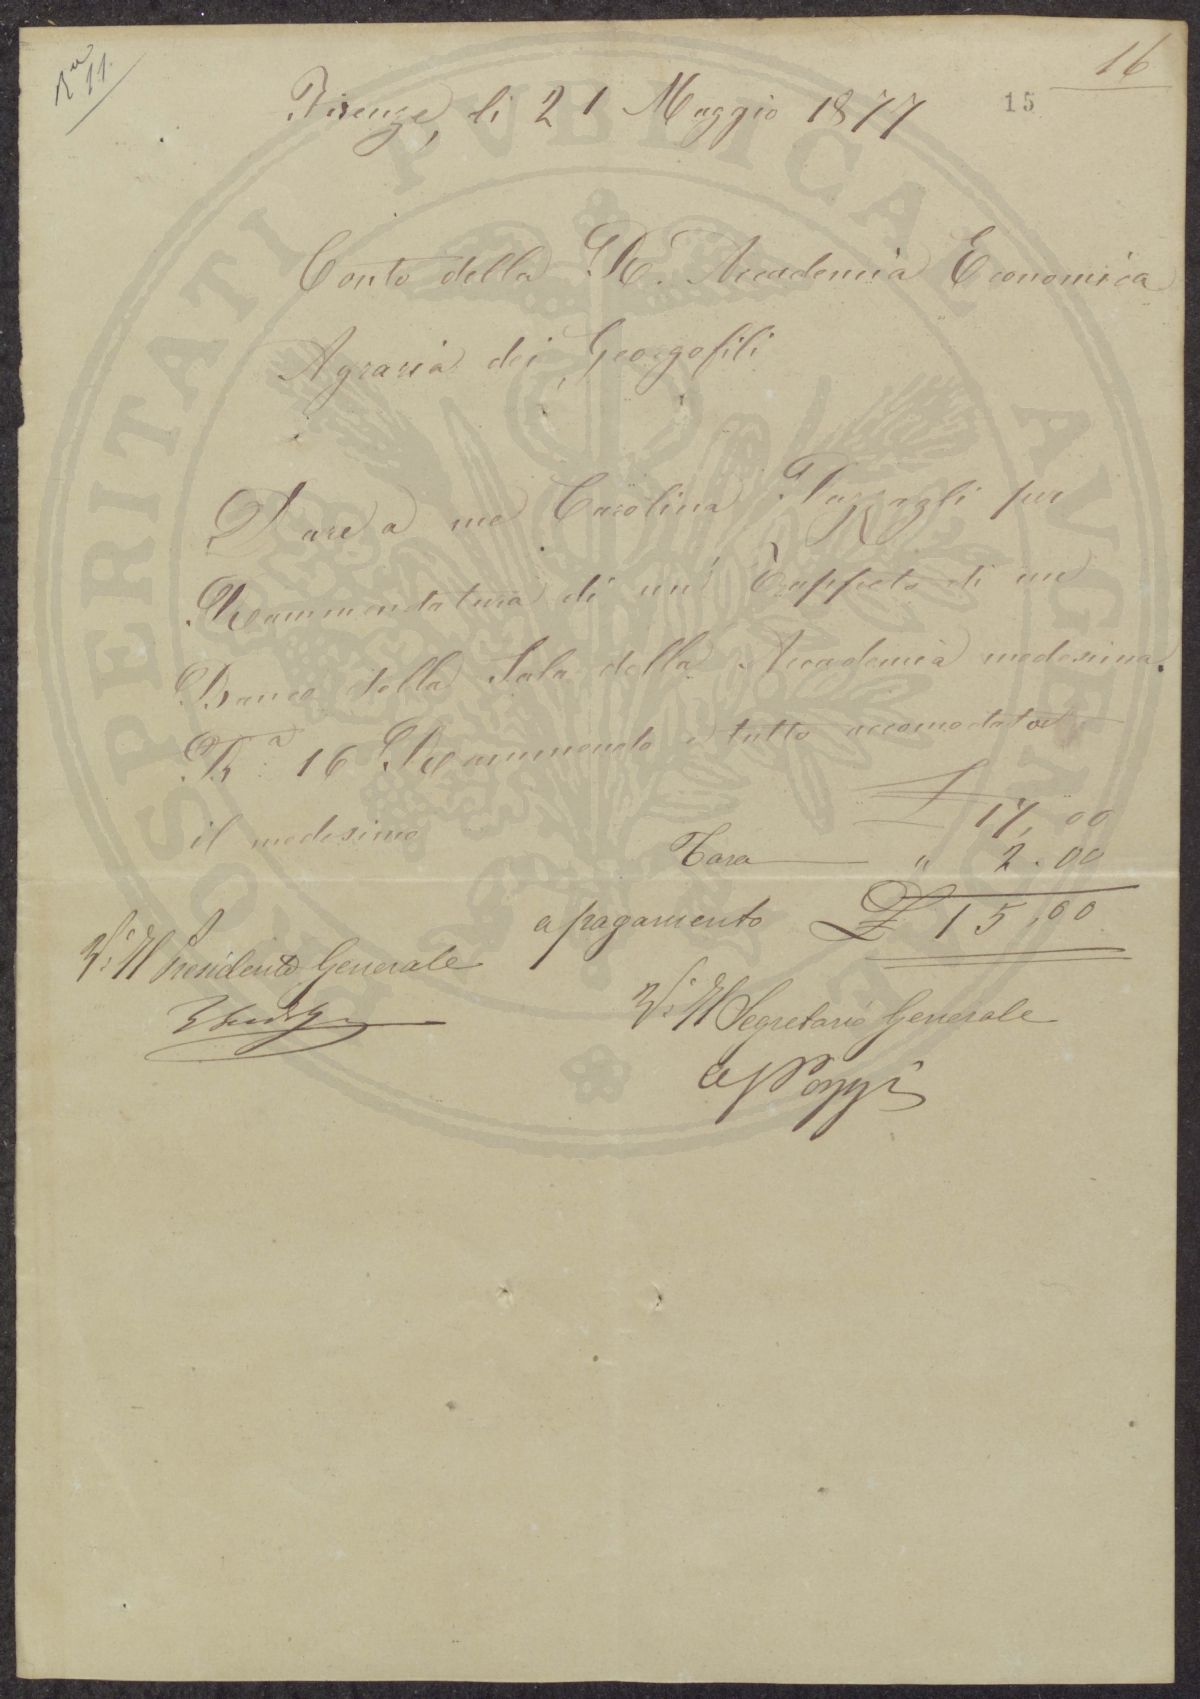 Rta 11.
16
15
Firenze, li 21 Maggio 1877
Conto della R. Accademia Economica
Agraria dei Georgofili
Dare a me Carolina Pazzagli per
Rammendatura di un' Tappeto di un
Banco della Sala della Accademia medesima.
Bª 16 Rammendo e tutto accomodato
il medesimo £ 17,00
Tara " 2.00
a pagamento £ 15,00
Vº Il Presidente Generale
Vº Il Segretario Generale
Poggi
PROSPERITATI PVBLICAE AVGENDAE